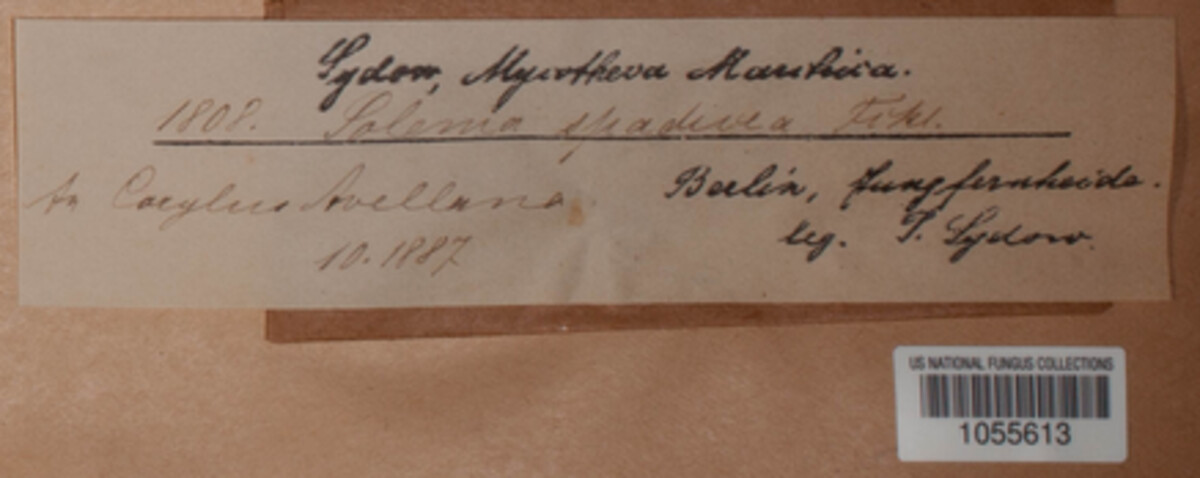 Sydow, Mycotheca Marchica.
1808. Solenia spadicea Fckl.
An Corylus Avellana
Berlin, Jungfernheide.
10. 1887
leg. P. Sydow.
US NATIONAL FUNGUS COLLECTIONS
1055613